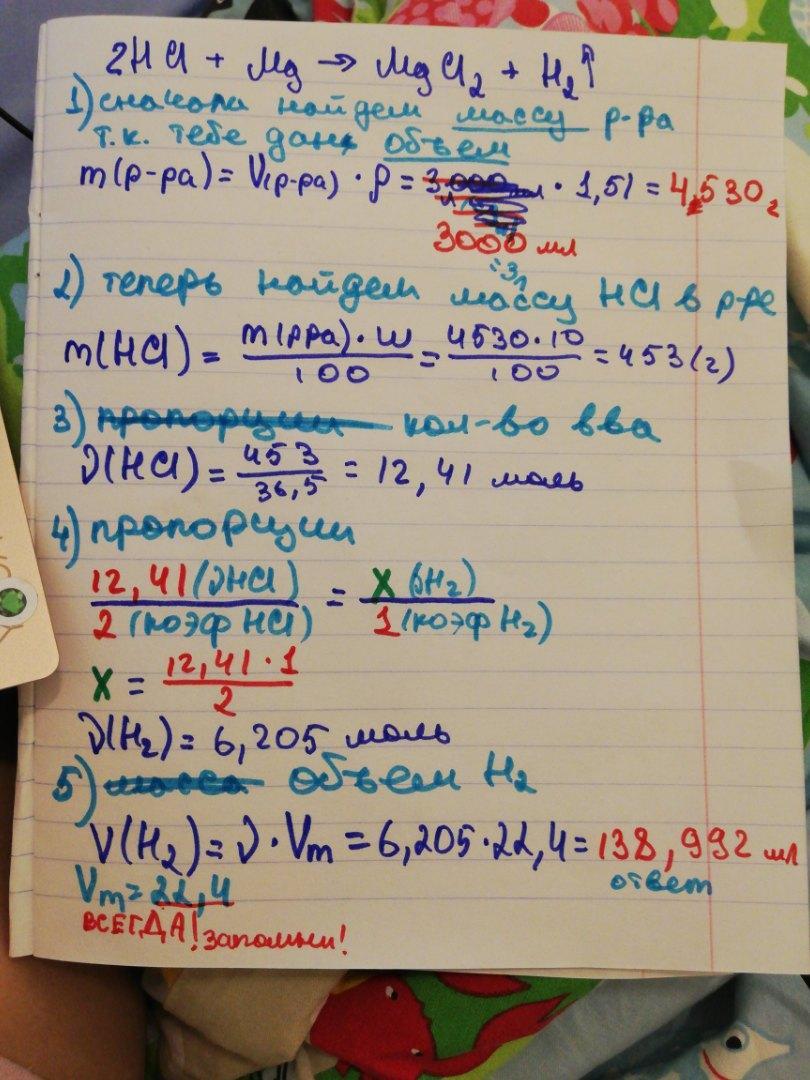 2HCl + Mg → MgCl₂ + H₂↑
1) сначала найдем массу р-ра
т.к. тебе дан объем
m(р-ра) = V(р-ра) · ρ = · 1,51 = 4530 г
3000 мл
= 3л
2) теперь найдем массу HCl в р-ре
m(HCl) = m(рра) · w / 100 = 4530 · 10 / 100 = 453 (г)
3) пропорции кол-во вва
ν(HCl) = 453 / 36,5 = 12,41 моль
4) пропорции
12,41 (νHCl) / 2 (коэф HCl) = X (νH₂) / 1 (коэф H₂)
X = 12,41 · 1 / 2
ν(H₂) = 6,205 моль
5) масса объем H₂
V(H₂) = ν · Vm = 6,205 · 22,4 = 138,992 мл
Vm = 22,4 ответ
ВСЕГДА! запомни!